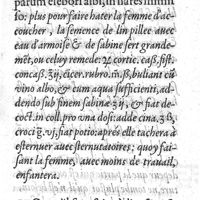 parum elebori albi, in nares immi
so. plus pour faire hater la femme d'ac-
coucher, la semence de lin pillee auec
eau d'armoise & de sabine sert grande-
met, ou celuy remede: ℞ cortic. cass. fist.
concass. ℥ij, cicer. rubro. m. ß, buliant cũ
vino albo, & cum aqua sufficienti, ad-
dendo sub finem sabinæ ʒij, & fiat de-
coct. in coll. pro vna dosi: adde cina. ʒß,
croci g̃. vj, fiat potio: apres elle tachera à
esternuer auec sternutatoires; quoy fai-
sant la femme, auec moins de trauail,
enfantera.